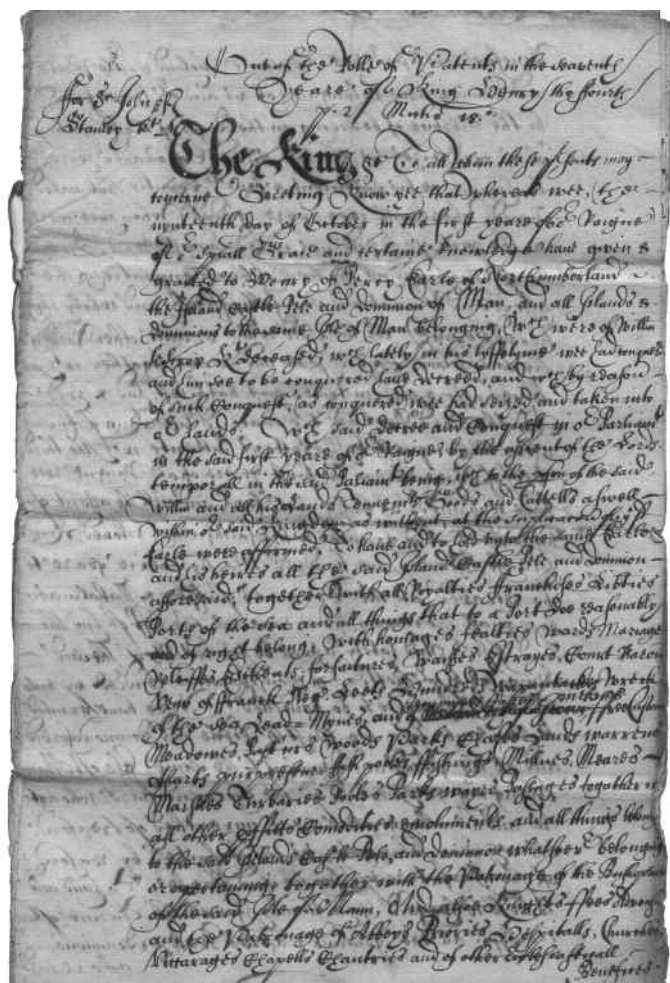 Out of the Rolle of Patents in the seaventh
yeare of King Henry the fourth
p. 2 Memb 18.
For Sr John
Stanley
The King &c To all whom these psents may
come Greeting Know yee that whereas wee, the
nynteenth day of October in the first yeare of or Raigne
of or speciall Grace and certaine knowledge have given &
graunted to Henry of Percy Earle of Northumberland
the Island Castle Pele and Dominion of Man, and all Islands &
dominions to the same Isle of Man belonging, wch were of Willm
Scroop Kt deceased, wch lately in his lyfe tyme wee had conquered
and him soe to be conquered have decreed, and wch by reason
of such Conquest, as conquered wee had seized and taken into
or hands. Wch said decree and Conquest in or Parliamt
in the said first yeare of or Raigne, by the assent of the Lords
temporall in the said Parliamt being, as to the pson of the said
Willm and all his Lands Tenemts Goods and Cattells aswell
within or said Kingdom as without, at the
Earle were affirmed, To have and to hold to the same Earle
and his heires all the said Island Castle Pele and Dominion
aforesaid, together with all Royalties Franchises Liberties
Ports of the Sea and all things that to a Port doe reasonably
and of right belong, with homages fealties Wards Mariages
Releiffes Escheats, forfaitures, Waifes Estrayes, Court Baron
View of Franck Leets Hundreds Wreck
of the Sea, Lead Mynes, and of
Meadowes, Pastures Woods Parks Chases Lands Warrens
fishings, Milnes, Meares
Marshes Turbaries Wayes Passages together wth
all other proffitts Comodities emoluments, and all things
to the said Island Castle Pele, and Dominion whatsoever belonging
or appertaininge together with the Patronage of the Bishoprick
of the said Isle of Mann, And alsoe Knights ffees
and the Patronage of Abbeys Priories Hospitalls, Churches
Vicarages Chapells Chantries and of other Ecclesiasticall
Benefices